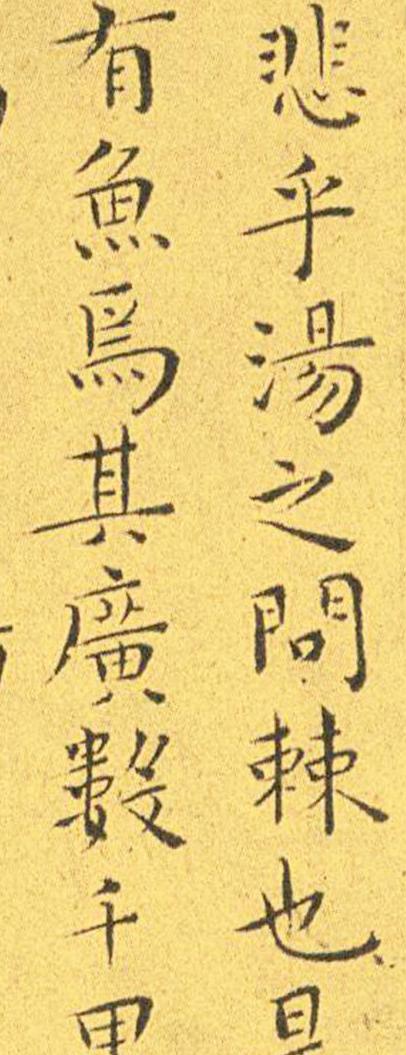 悲乎湯之問棘也
有魚焉其廣數千